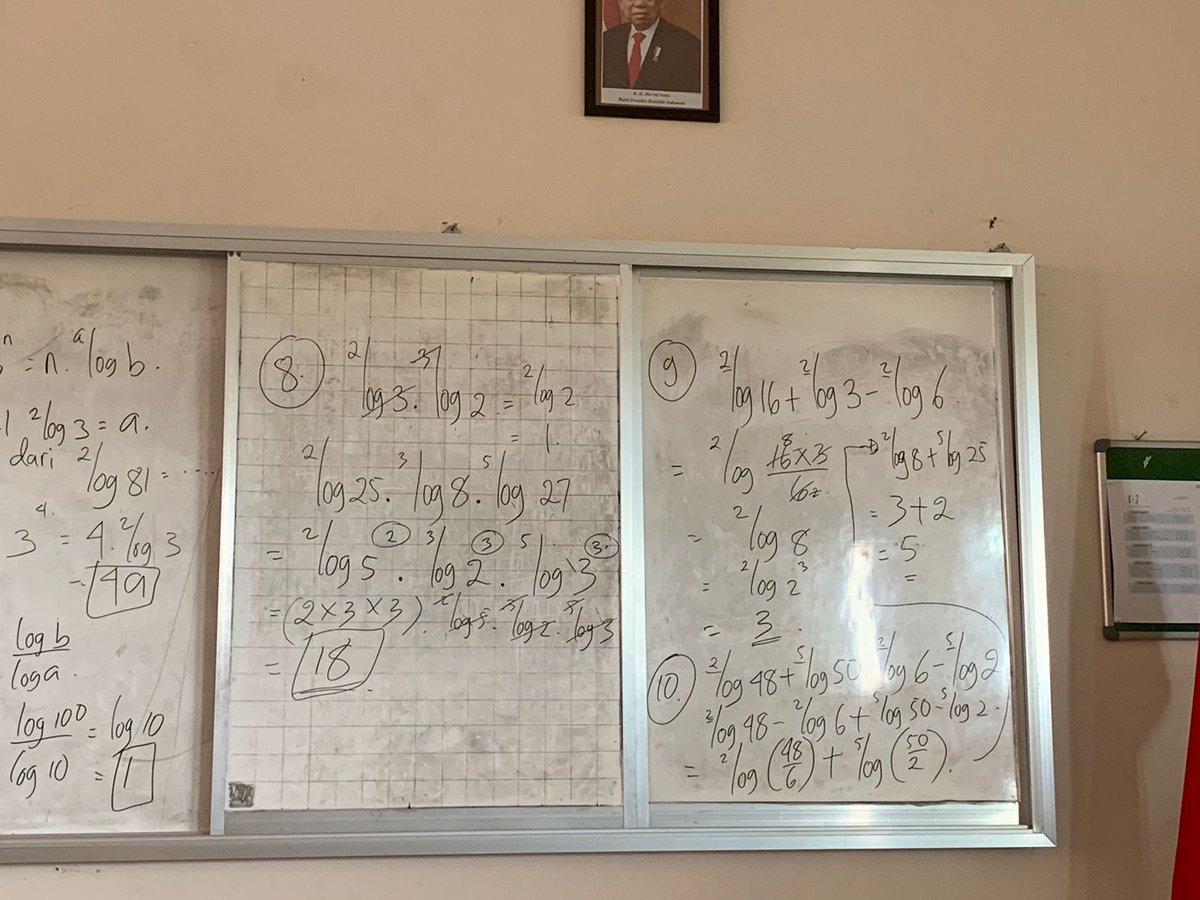 K. H. Ma'ruf Amin
Wakil Presiden Republik Indonesia
n
= n. ᵃlog b.
²log 3 = a.
dari ²log 81 = ....
3⁴ = 4. ²log 3
= 4a
log b
log a.
log 100 = log 10
log 10 = 1
8.
²log 3. ³log 2 = ²log 2
= 1.
²log 25. ³log 8. ⁵log 27
= ²log 5². ³log 2³. ⁵log 3³.
= (2 × 3 × 3). ²log 5. ³log 2. ⁵log 3
= 18
9
²log 16 + ²log 3 - ²log 6
= ²log 16 × 3
8
6 2
= ²log 8
= ²log 2³
= 3.
²log 8 + ⁵log 25
= 3 + 2
= 5
=
10.
²log 48 + ⁵log 50 - ²log 6 - ⁵log 2
²log 48 - ²log 6 + ⁵log 50 - ⁵log 2.
= ²log (48/6) + ⁵log (50/2).